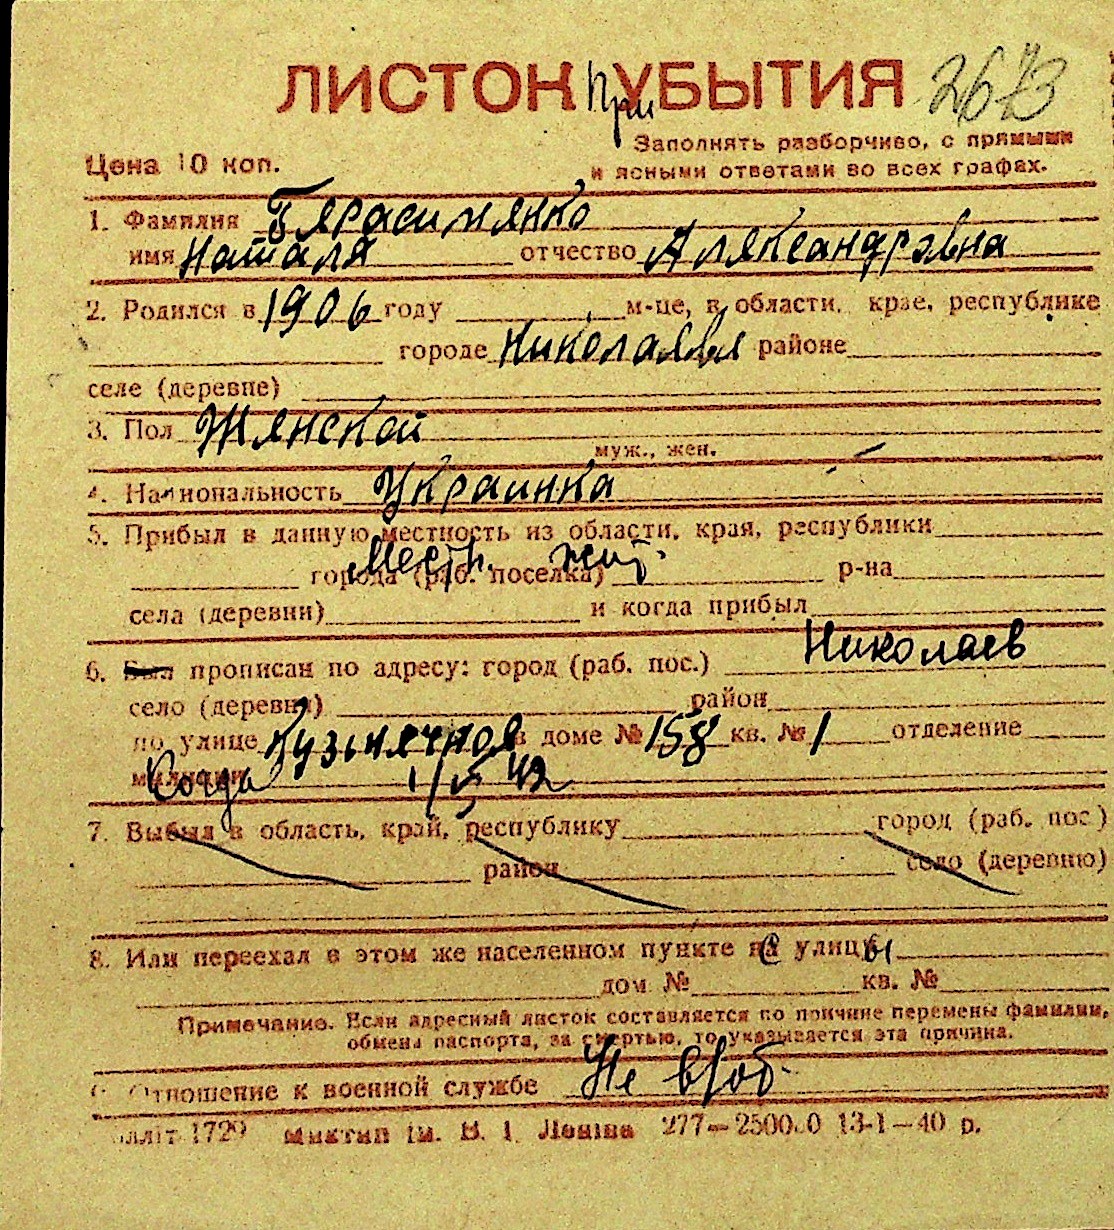 ЛИСТОК При УБЫТИЯ 2673
Заполнять разборчиво, с прямыми
Цена 10 коп. и ясными ответами во всех графах.
1. Фамилия Герасименко
имя Наталя отчество Александровна
2. Родился в 1906 году м-це, в области, крае, республике
городе Николаеве районе
селе (деревне)
3. Пол Женской
муж., жен.
4. Национальность Украинка
5. Прибыл в данную местность из области, края, республики
Местн. жит.
города (раб. поселка) р-на
села (деревни) и когда прибыл
6. Был прописан по адресу: город (раб. пос.) Николаев
село (деревня) район
по улице Кузнечной в доме № 158 кв. № 1 отделение
милиции Когда 1/V 42
7. Выбыл в область, край, республику город (раб. пос.)
район село (деревню)
8. Или переехал в этом же населенном пункте на с улицу ы
дом № кв. №
Примечание. Если адресный листок составляется по причине перемены фамилии,
обмена паспорта, за смертью, то указывается эта причина.
Отношение к военной службе Не в/об.
1729 им. В. І. Леніна 13-1—40 р.